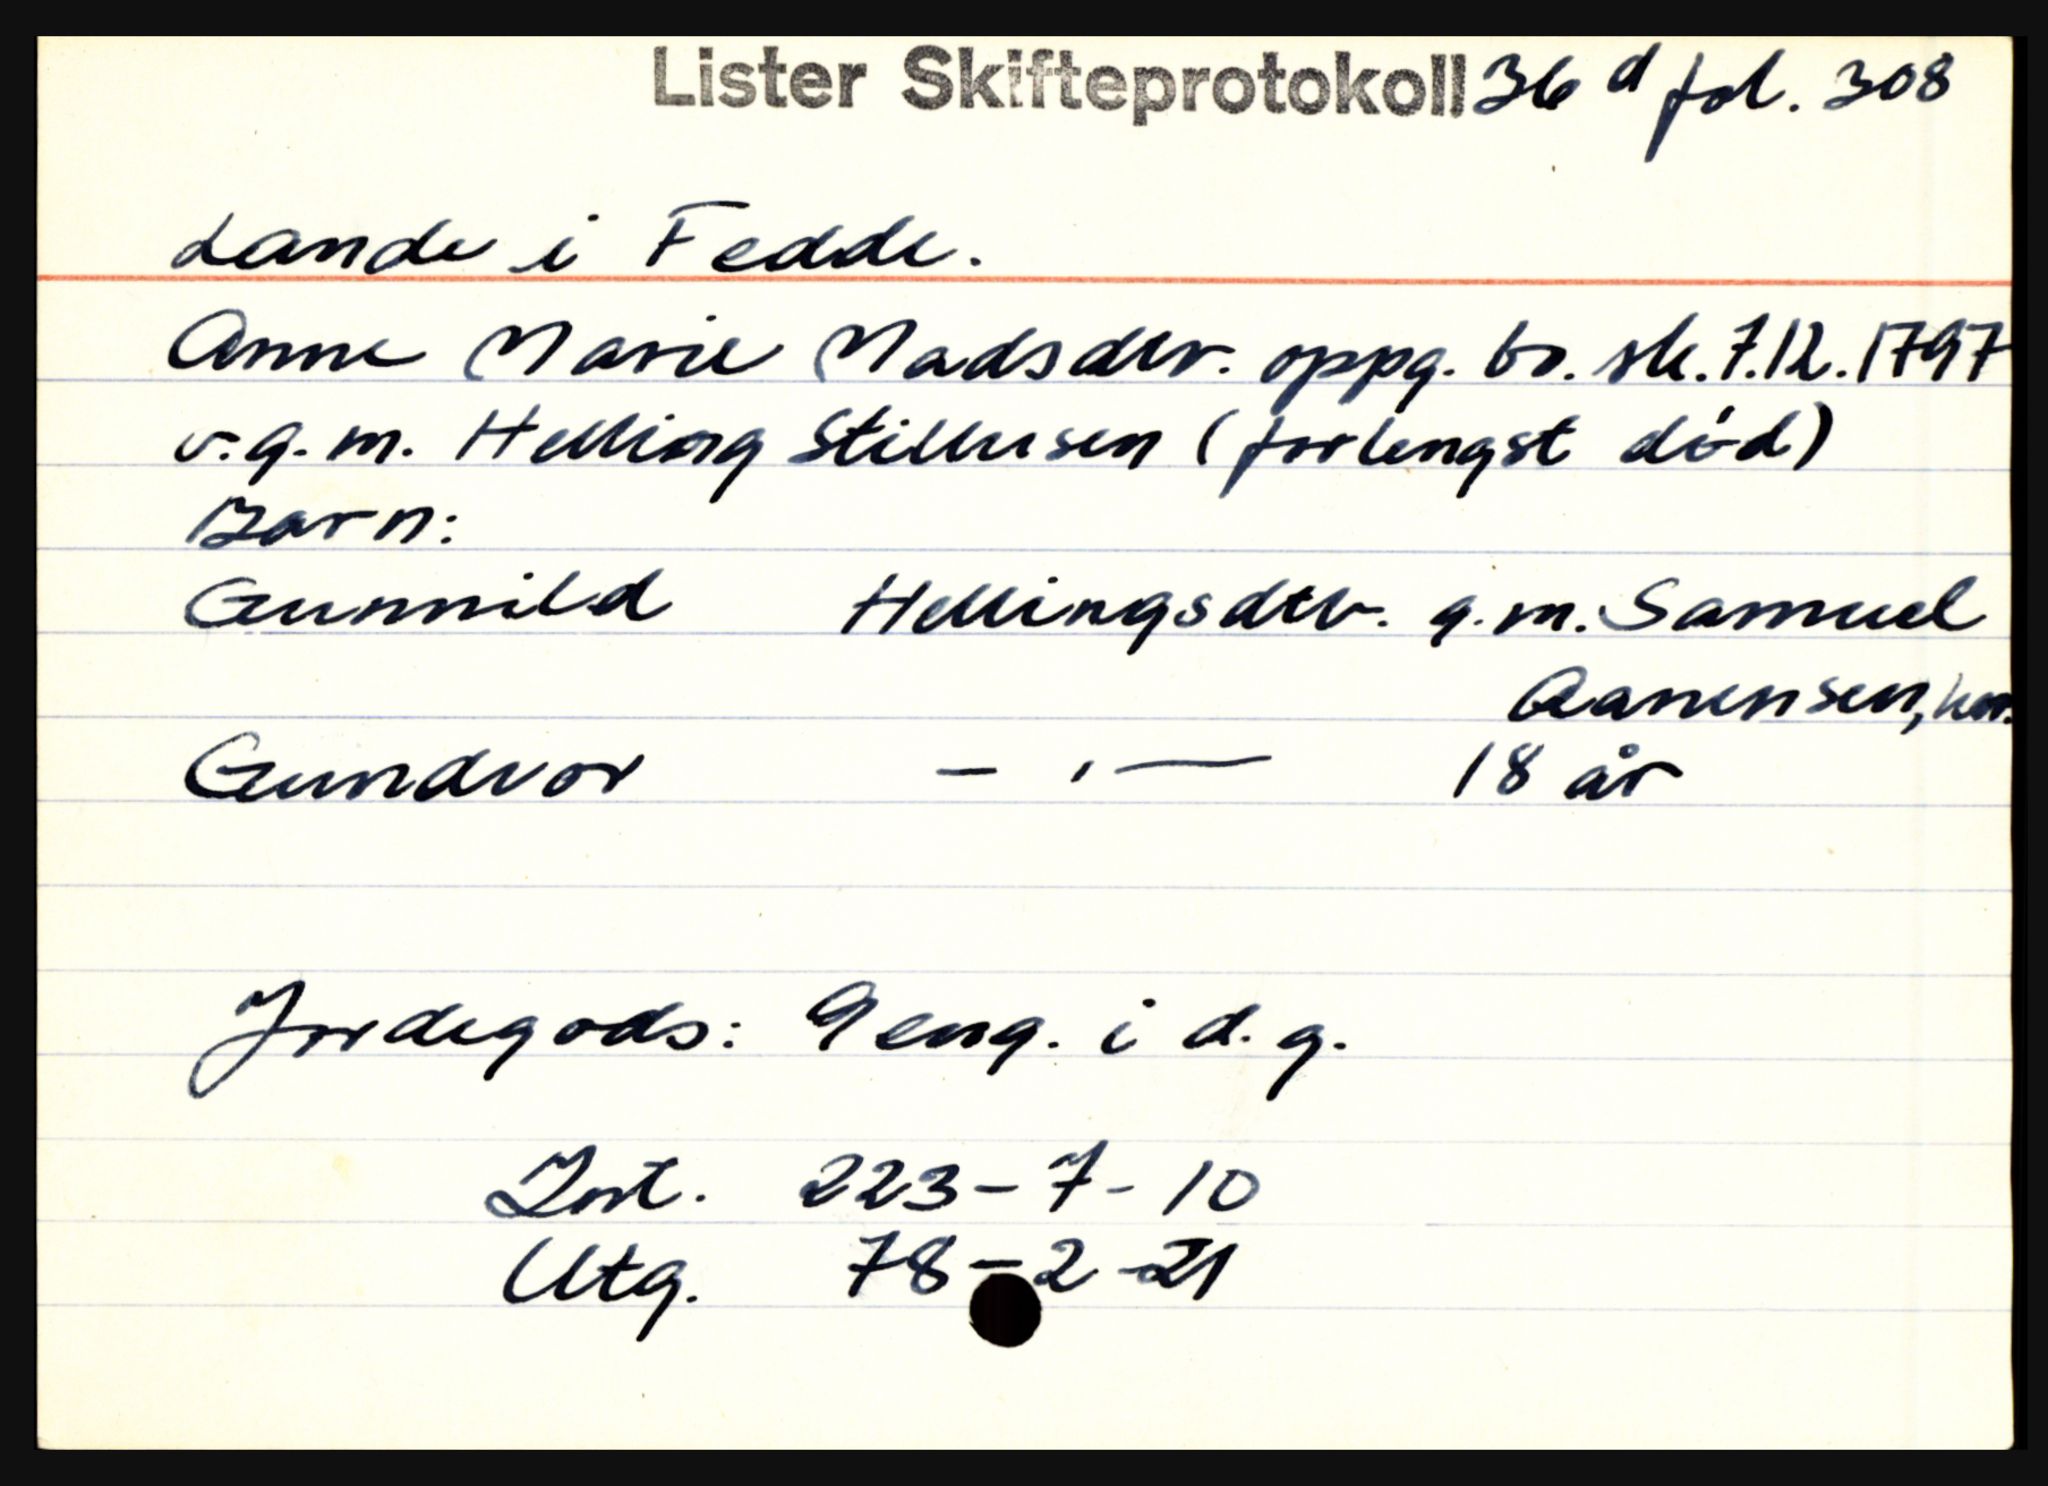 Lister Skifteprotokoll 36 d fol. 308
Lande i Fedde.
Anne Marie Madsdtr. oppg. bo. sk. 7.12.1797
v.g.m. Helling Stillufsen (forlengst død)
Barn:
Gunnild Hellingsdtr. g.m. Samuel
Aanensen, her.
Gundvor — , — 18 år
Jordegods: 9 eng. i d.g.
Brt. 223 - 7 - 10
Utg. 78 - 2 - 21